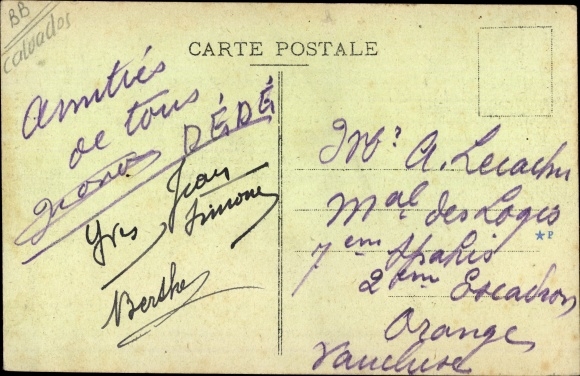 BB
Calvados
CARTE POSTALE
Amitiés
de tous
DÉDÉ
Yves Jean
Simone
Berthe
Mr. A. Lecachu
Mal des Logis
7em Spahis
2em Escadron
Orange
Vaucluse
*P